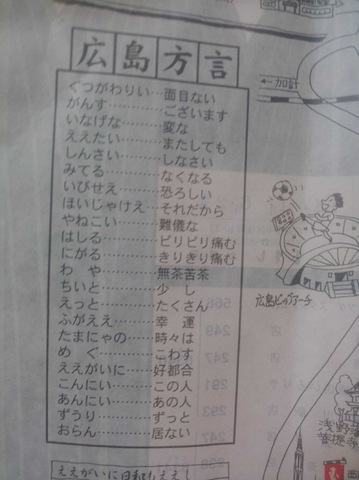 広島方言
ぐつがわりい……面目ない
がんす……ございます
いなげな……変な
ええたい……またしても
しんさい……しなさい
みてる……なくなる
いびせえ……恐ろしい
ほいじゃけえ…それだから
やねこい……難儀な
はしる……ピリピリ痛む
にがる……きりきり痛む
わや……無茶苦茶
ちいと……少し
えっと……たくさん
ふがええ……幸運
たまにゃの……時々は
めぐ……こわす
ええがいに……好都合
こんにい……この人
あんにい……あの人
ずうり……ずっと
おらん……居ない
←加計
広島ビッグアーチ